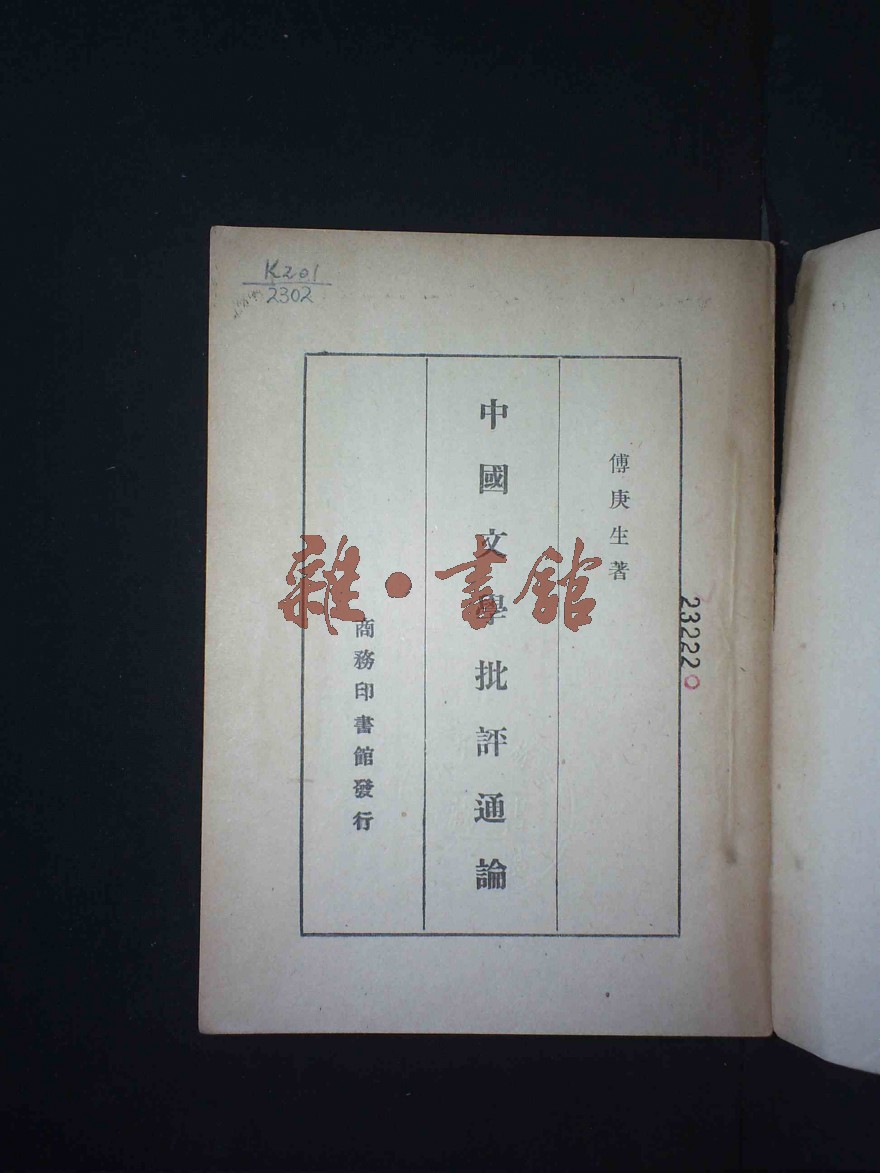 K201
2302
傅庚生著
中國文學批評通論
商務印書館發行
雜·書館
23222